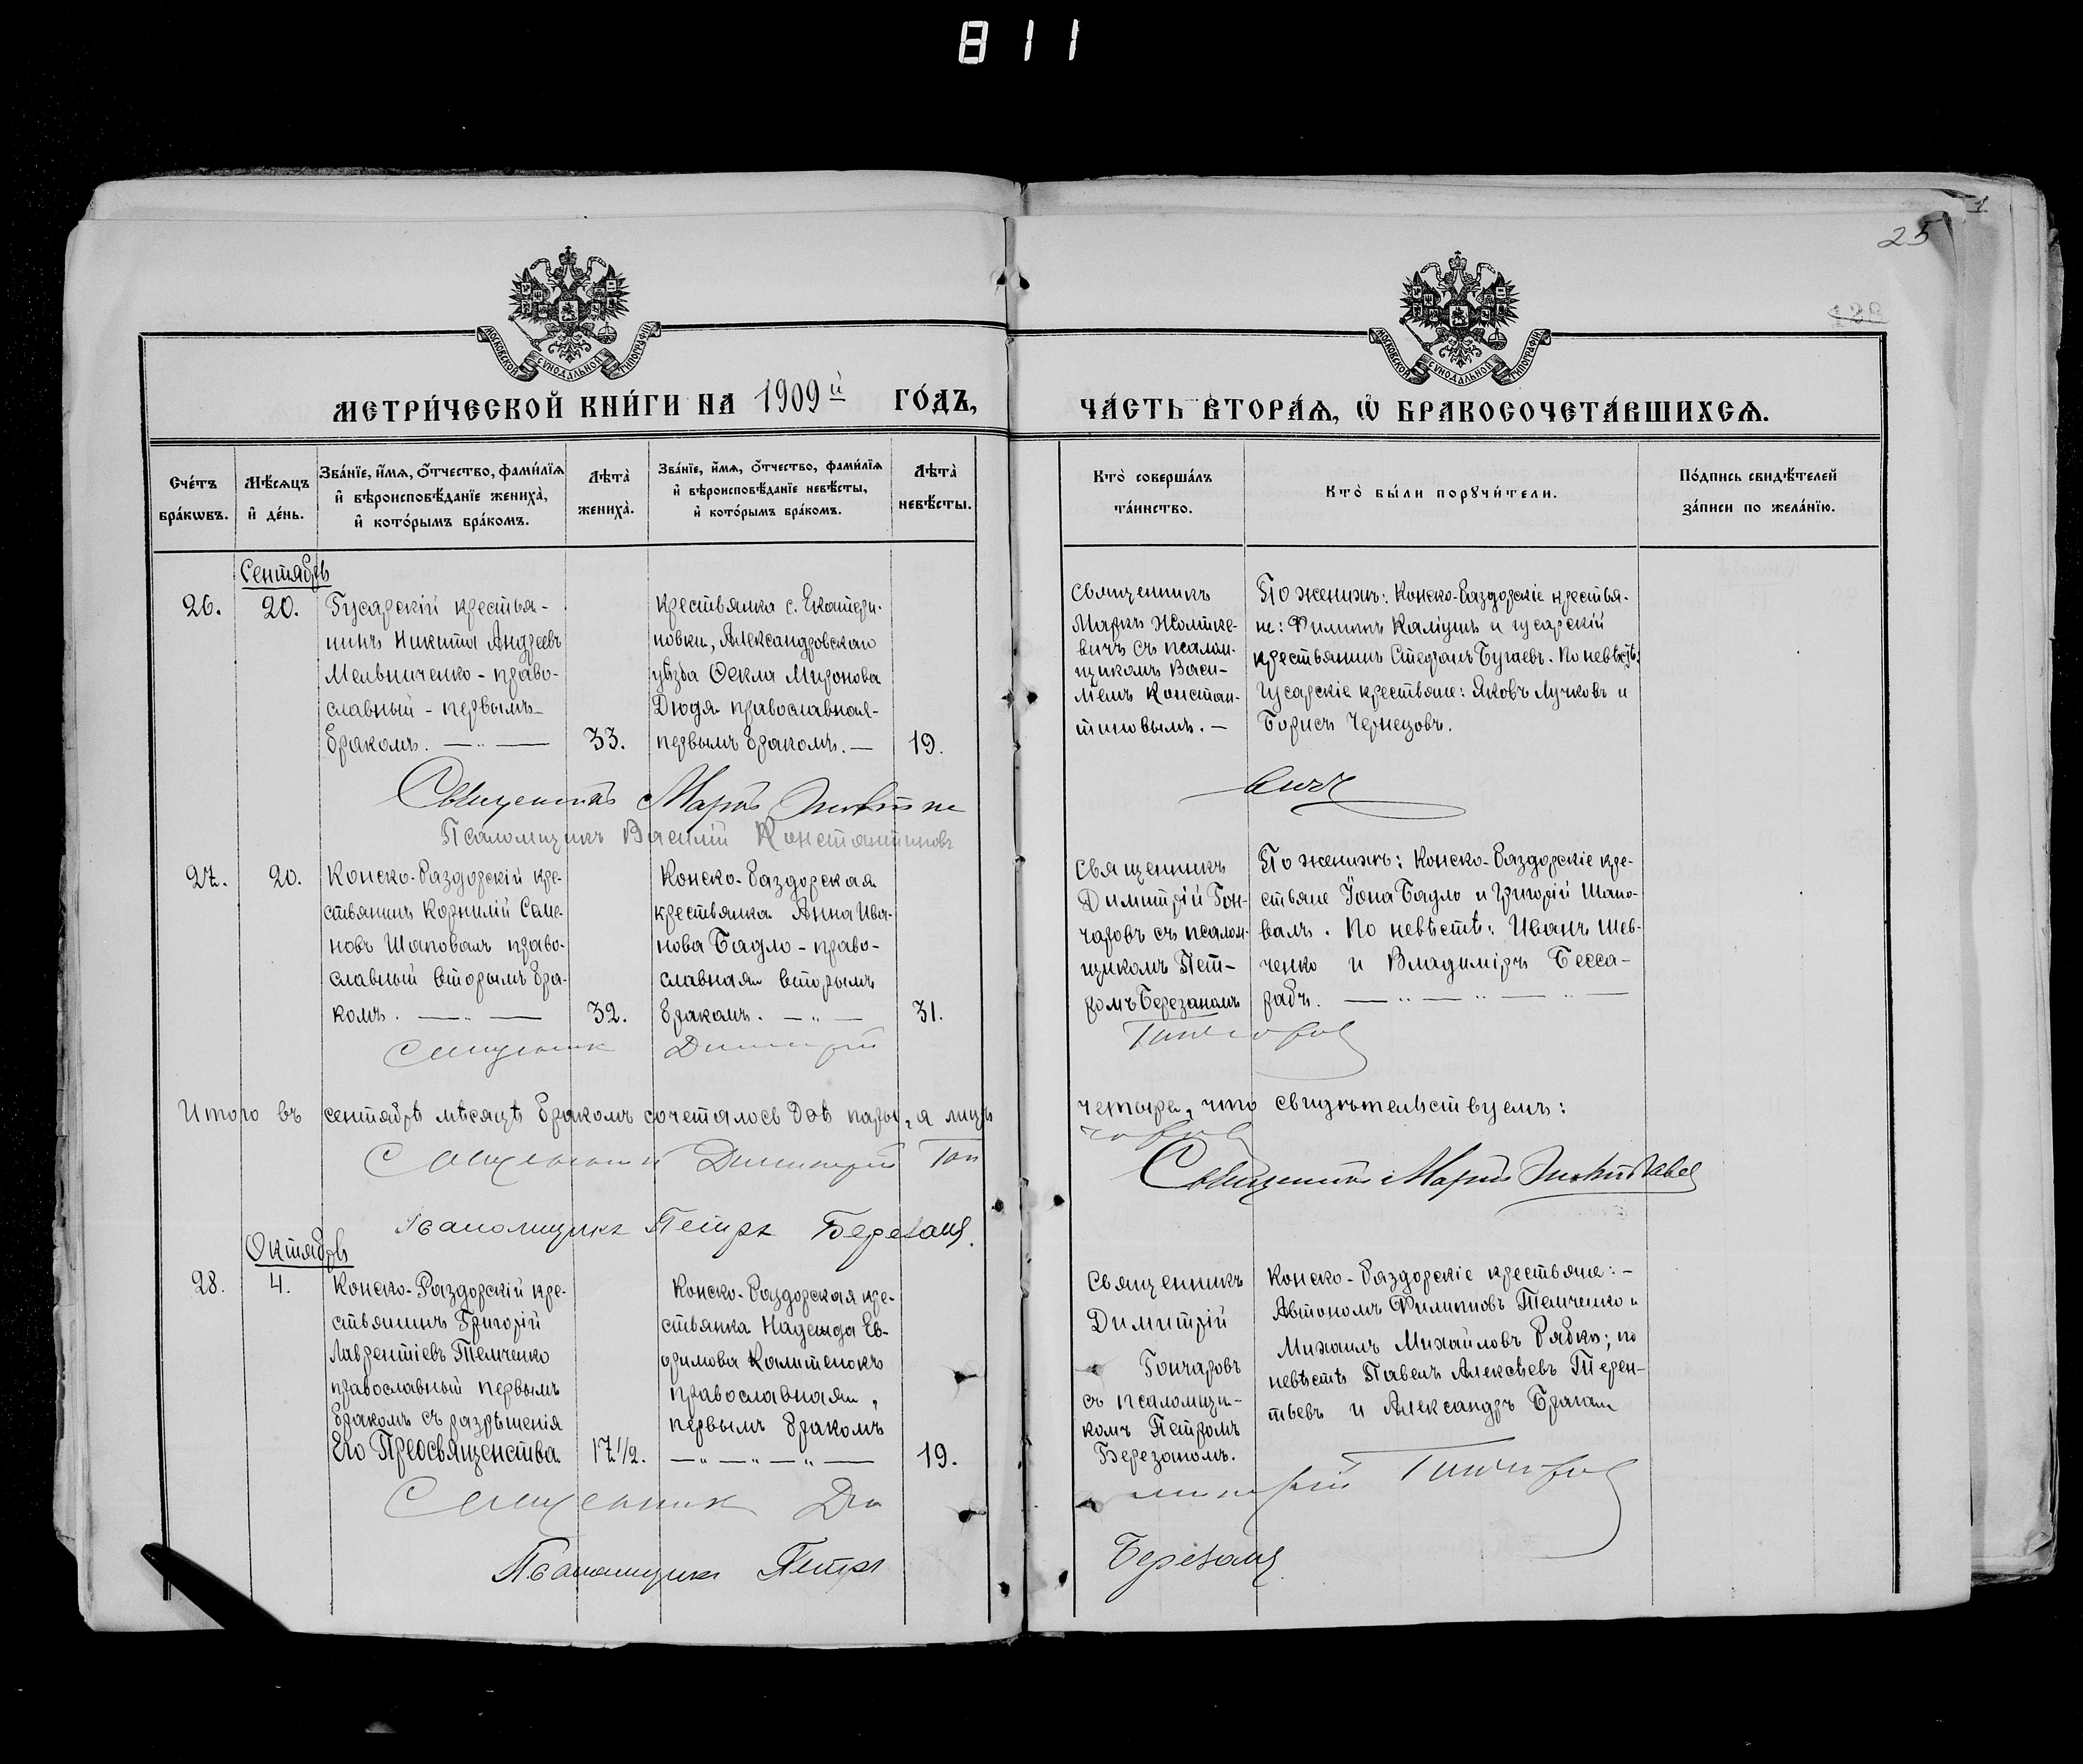 811
25
МОСКОВСКОЙ СѴНОДАЛЬНОЙ ТИПОГРАФІИ.
МОСКОВСКОЙ СѴНОДАЛЬНОЙ ТИПОГРАФІИ.
МЕТРИ́ЧЕСКОЙ КНИ́ГИ НА 1909й ГО́ДЪ,
ЧА́СТЬ ВТОРА́Ѧ, Ѡ҆ БРАКОСОЧЕТА́ВШИХСѦ.
Сче́тъ бра́кѡвъ.
Мѣ́сяцъ и҆ де́нь.
Зва́нїе, и҆́мѧ, ѻ҆́тчество, фами́лїѧ
и҆ вѣроисповѣ́данїе жениха̀,
и҆ кото́рымъ бра́комъ.
Лѣта̀ жениха̀.
Зва́нїе, и҆́мѧ, ѻ҆́тчество, фами́лїѧ
и҆ вѣроисповѣ́данїе невѣ́сты,
и҆ кото́рымъ бра́комъ.
Лѣта̀ невѣ́сты.
Кто̀ соверша́лъ та́инство.
Кто̀ бы́ли порꙋчи́тели.
По́дпись свидѣ́телей за́писи по жела́нїю.
Сентябрь
26.
20.
Гусарскій крестья-
нинъ Никита Андреевъ
Мельниченко - право-
славный - первымъ
бракомъ. — „ —
33.
крестьянка с. Екатери-
новки, Александровскаго
уѣзда Ѳекла Миронова
Дюдя православная-
первымъ бракомъ. —
19.
Священникъ
Маркъ Жолтке-
вичъ съ псалом-
щикомъ Васи-
ліемъ Констан-
тиновымъ. —
По женихѣ: Конско-Раздорскіе крестья-
не: Филиппъ Каліушъ и гусарскій
крестьянинъ Стефанъ Бугаевъ. По невѣстѣ:
Гусарскіе крестьяне: Яковъ Лучковъ и
Борисъ Чернецовъ.
Священникъ Маркъ
Псаломщикъ Василій Константиновъ
27.
20.
Конско-Раздорскій кре-
стьянинъ Корнилій Саме-
новъ Шаповалъ право-
славный вторымъ бра-
комъ. — „ —
32.
Конско-Раздорская
крестьянка Анна Ива-
нова Бадло - право-
славная вторымъ
бракомъ. — „ —
31.
Священникъ
Димитрій Гон-
чаровъ съ псалом-
щикомъ Пет-
ромъ Березаномъ
По женихѣ: Конско-Раздорскіе кре-
стьяне Іона Бадло и Григорій Шапо-
валъ. По невѣстѣ: Иванъ Шев-
ченко и Владиміръ Бесса-
рабъ. — „ — „ — „ —
Священник Димитрій Гончаров
Итого въ сентябрѣ мѣсяцѣ бракомъ сочеталось двѣ пары, а лицъ четыре, что свидѣтельствуемъ:
Священник Димитрій Гончаров
Священникъ Маркъ
Псаломщикъ Петръ Березанъ.
Октябрь
28.
4.
Конско-Раздорскій кре-
стьянинъ Григорій
Лаврентіевъ Темченко
православный первымъ
бракомъ съ разрѣшенія
Его Преосвященства
17 1/2.
Конско-Раздорская кре-
стьянка Надежда Ев-
фимова Калитенокъ
православная,
первымъ бракомъ
— „ — „ — „ —
19.
Священникъ
Димитрій
Гончаровъ
съ псаломщи-
комъ Петромъ
Березаномъ.
Конско-Раздорскіе крестьяне: -
Автономъ Филипповъ Темченко и
Михаилъ Михайловъ Рябко; по
невѣстѣ Павелъ Алексѣевъ Терен-
тьевъ и Александръ Браган
Священник Димитрій Гончаров
Псаломщикъ Петръ Березанъ